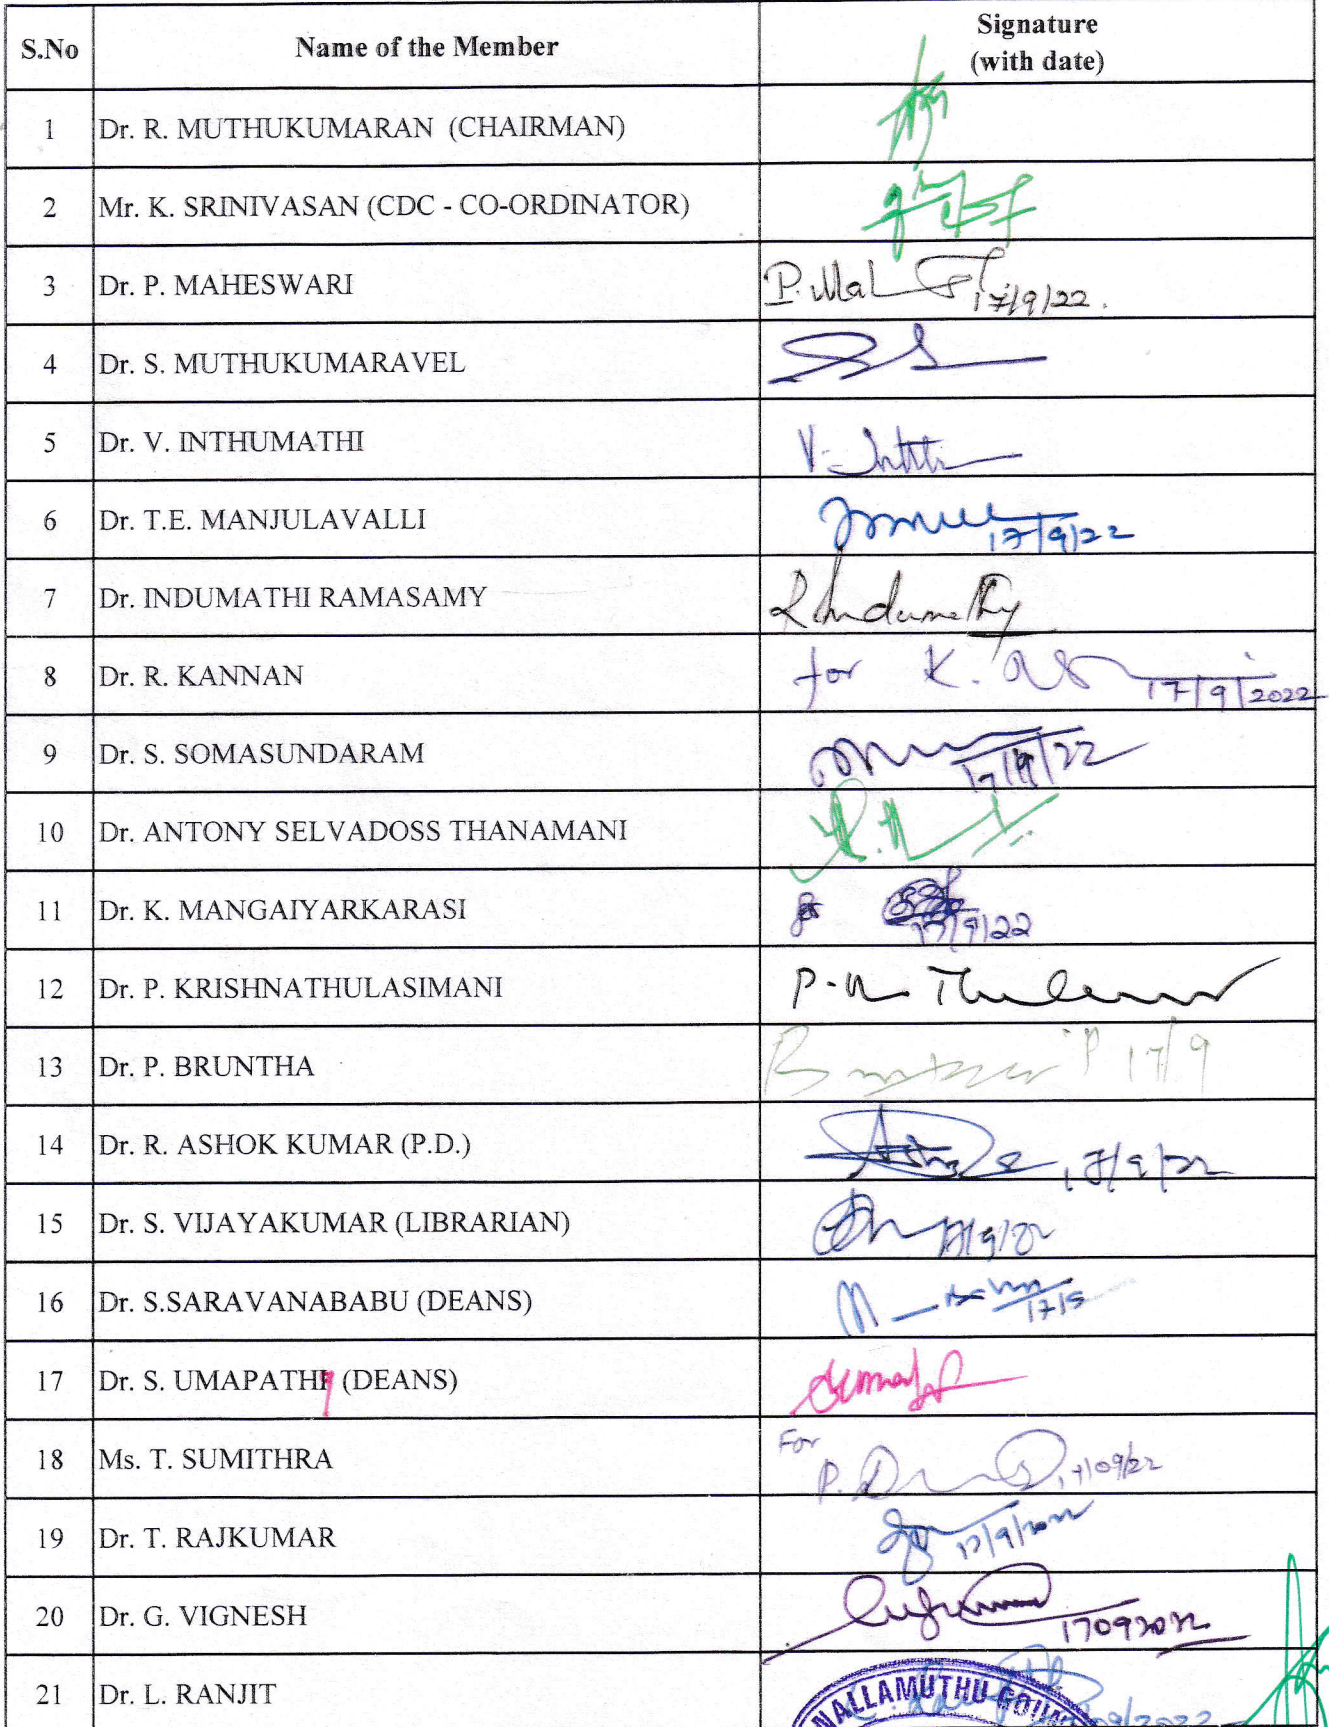 S.No Name of the Member Signature
(with date)
1 Dr. R. MUTHUKUMARAN (CHAIRMAN)
2 Mr. K. SRINIVASAN (CDC - CO-ORDINATOR)
3 Dr. P. MAHESWARI 17/9/22.
4 Dr. S. MUTHUKUMARAVEL
5 Dr. V. INTHUMATHI
6 Dr. T.E. MANJULAVALLI 17/9/22
7 Dr. INDUMATHI RAMASAMY
8 Dr. R. KANNAN for K. 17/9/2022
9 Dr. S. SOMASUNDARAM 17/9/22
10 Dr. ANTONY SELVADOSS THANAMANI
11 Dr. K. MANGAIYARKARASI 17/9/22
12 Dr. P. KRISHNATHULASIMANI
13 Dr. P. BRUNTHA 17/9
14 Dr. R. ASHOK KUMAR (P.D.) 17/9/22
15 Dr. S. VIJAYAKUMAR (LIBRARIAN)
16 Dr. S.SARAVANABABU (DEANS)
17 Dr. S. UMAPATHY (DEANS)
18 Ms. T. SUMITHRA For P. 17/09/22
19 Dr. T. RAJKUMAR 17/9/2022
20 Dr. G. VIGNESH 17092022
21 Dr. L. RANJIT
NALLAMUTHU